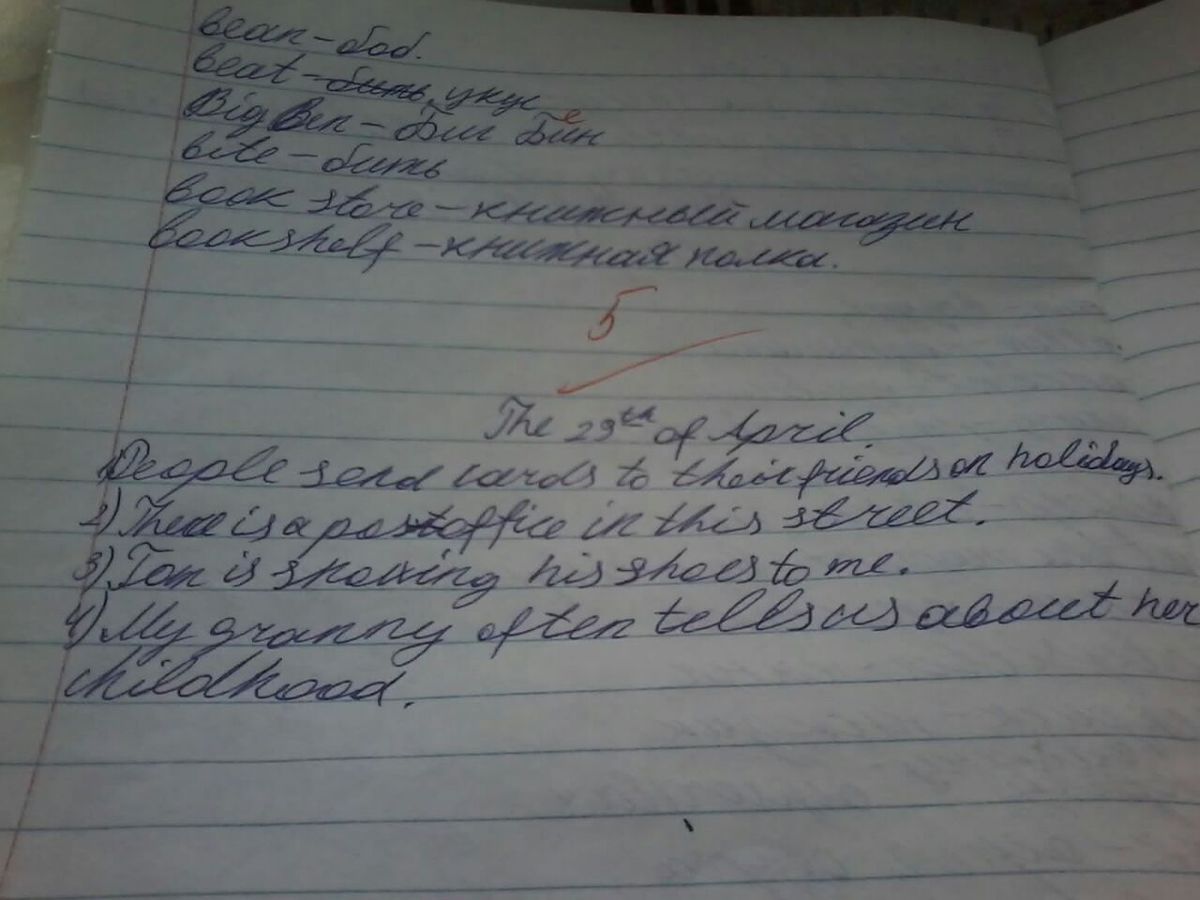 bean - боб.
beat - бить, укус
Big Ben - Биг Бен
bite - бить
book store - книжный магазин
bookshelf - книжная полка.
5
The 29th of April.
1) People send cards to their friends on holidays.
2) There is a post office in this street.
3) Tom is showing his shoes to me.
4) My granny often tells us about her
childhood.